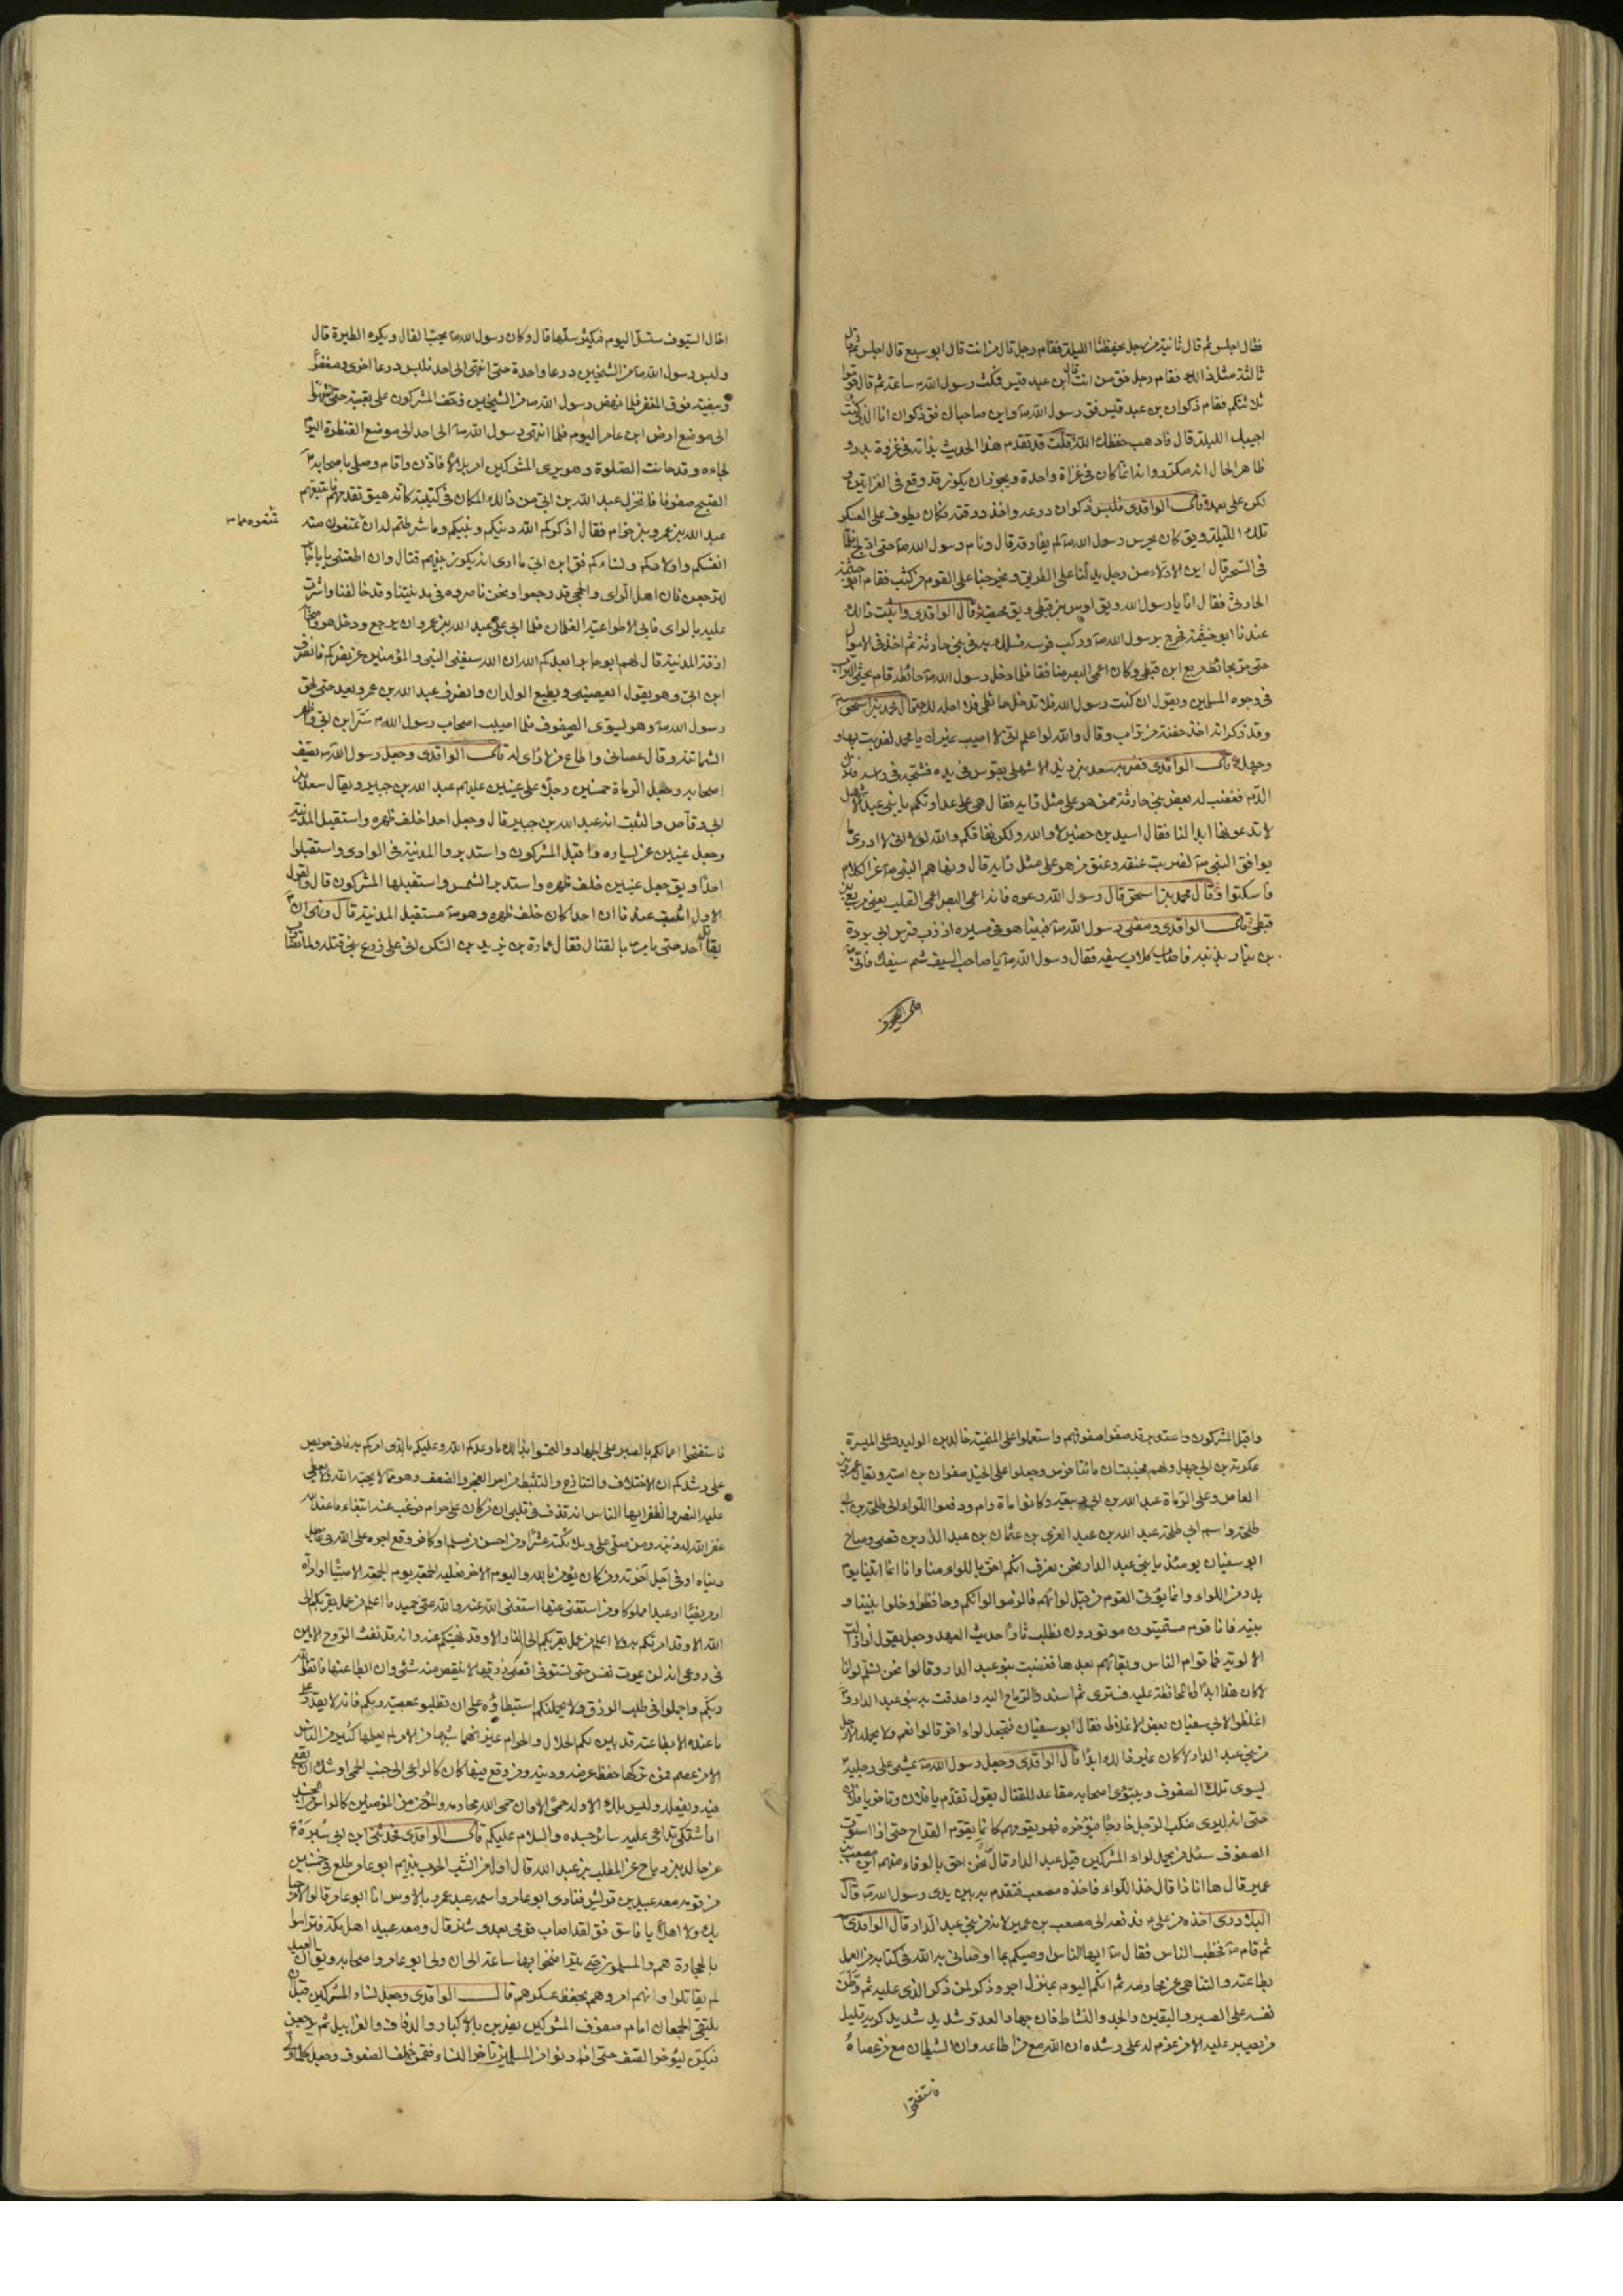 فقال اجلس ثم قال ثانية من رجل يحفظنا الليلة فقام رجل قال من انت قال ابو سبع قال اجلس ثم قال
ثالثة مثل ذلك فقام رجل فق من انت قال ابن عبد قيس فمكث رسول الله ص ساعة ثم قال قوموا
ثلاثتكم فقام ذكوان بن عبد قيس فق رسول الله ص واين صاحباك فق ذكوان انا الذي كنت
اجيبك الليلة قال فاذهب حفظك الله قلت قد تقدم هذا الحديث بذاته في غزوة بدر و
ظاهر الحال انه مكرر وانه انما كان في غزاة واحدة ويجوز ان يكون قد وقع في الغزاتين و
لكن على بعد قال الواقدي فلبس ذكوان درعه واخذ درقته فكان يطوف على العسكر
تلك الليلة ويق كان يحرس رسول الله ص لم يفارقه قال ونام رسول الله ص حتى ادلج فلما
في السحر قال اين الادلاء من رجل يدلنا على الطريق ويخرجنا على القوم من كثب فقام ابو خيثمة
الحارثي فقال انا يا رسول الله ويق اوس بن قيظي ويق محيصة قال الواقدي واثبت ذلك
عندنا ابو خيثمة فخرج برسول الله ص وركب فرسه فسلك به في بني حارثة ثم اخذ في الاموال
حتى مر بحائط مربع ابن قيظي وكان اعمى البصر منافقا فلما دخل رسول الله ص حائطه قام يحثي التراب
في وجوه المسلمين ويقول ان كنت رسول الله فلا تدخل حائطي فلا احله لك قال محمد بن اسحق
وقد ذكر انه اخذ حفنة من تراب وقال والله لو اعلم اني لا اصيب غيرك يا محمد لضربت بها و
وجهك قال الواقدي فضربه سعد بن زيد الاشهلي بقوس في يده فشجه في راسه فنزل
الدم فغضب له بعض بني حارثة ممن هو على مثل رايه فقال هي على عداوتكم يا بني عبد الاشهل
لا تدعونها ابدا لنا فقال اسيد بن حضير لا والله ولكن نفاقكم والله لولا اني لا ادري ما
يوافق النبي ص لضربت عنقه وعنق من هو على مثل رايه قال ونهاهم النبي ص عن الكلام
فاسكتوا وقال محمد بن اسحق قال رسول الله دعوه فانه اعمى البصر اعمى القلب يعني مربع بن
قيظي قال الواقدي ومضى رسول الله ص فبينا هو في مسيره اذ ذب فرس ابي بردة
بن نيار بذنبه فاصاب كلاب سيفه فقال رسول الله ص يا صاحب السيف شم سيفك فاني
اخال السيوف
اخال السيوف ستسل اليوم فيكثر سلها قال وكان رسول الله ص يحب الفال ويكره الطيرة قال
ولبس رسول الله ص من الشيخين درعا واحدة حتى انتهى الى احد فلبس درعا اخرى ومغفرا
وبيضة فوق المغفر فلما نهض رسول الله ص من الشيخين زحف المشركون على تعبية حتى انتهوا
الى موضع ارض ابن عامر اليوم فلما انتهى رسول الله ص الى احد الى موضع القنطرة اليوم
جاءه وقد حانت الصلوة وهو يرى المشركين امر بلالا فاذن واقام وصلى باصحابه
الصبح صفوفا فانخزل عبد الله بن ابي من ذلك المكان في كتيبة كانه هيق تقدمهم فاتبعهم
عبد الله بن عمرو بن حرام فقال اذكركم الله دينكم ونبيكم وما شرطتم له ان تمنعوه مما تمنعون منه
انفسكم واولادكم ونساءكم فق ابن ابي ما ارى انه يكون بينهم قتال وان اطعتني يا ابا جابر
لترجعن فان اهل الراي والحجى قد رجعوا ونحن ناصروه في مدينتنا وقد خالفنا واشرت
عليه بالراي فابى الا طواعية الغلمان فلما ابى على عبد الله بن عمرو ان يرجع ودخل هو واصحابه
ازقة المدينة قال لهم ابو جابر ابعدكم الله ان الله سيغني النبي والمؤمنين عن نصركم فانصرف
ابن ابي وهو يقول ايعصيني ويطيع الولدان وانصرف عبد الله بن عمرو يعدو حتى لحق
رسول الله ص وهو يسوى الصفوف فلما اصيب اصحاب رسول الله ص سر ابن ابي واظهر
الشماتة وقال عصاني واطاع من لا راى له قال الواقدي وجعل رسول الله ص يصف
اصحابه وجعل الرماة خمسين رجلا على عينين عليهم عبد الله بن جبير ويقال سعد بن
ابي وقاص والثبت انه عبد الله بن جبير قال وجعل احدا خلف ظهره واستقبل المدينة
وجعل عينين عن يساره واقبل المشركون واستدبروا المدينة في الوادي واستقبلوا
احدا ويق جعل عينين خلف ظهره واستدبر الشمس واستقبلها المشركون قال والقول
الاول اثبت عندنا ان احدا كان خلف ظهره وهو ص مستقبل المدينة قال ونهى ان
يقاتل احد حتى يامره بالقتال فقال عمارة بن يزيد بن السكن انى على زرع بني قيلة ولما نضارب
واقبل المشركون واستعدوا قد صفوا صفوفهم واستعملوا على الميمنة خالد بن الوليد وعلى الميسرة
عكرمة بن ابي جهل ولهم مجنبتان مائتا فرس وجعلوا على الخيل صفوان بن امية ويقال عمرو بن
العاص وعلى الرماة عبد الله بن ابي ربيعة وكانوا مائة رام ودفعوا اللواء الى طلحة بن ابي
طلحة واسم ابي طلحة عبد الله بن عبد العزى بن عثمان بن عبد الدار بن قصي وصاح
ابو سفيان يومئذ يا بني عبد الدار نحن نعرف انكم احق باللواء منا وانا انما اتينا يوم
بدر من اللواء وانما يؤتى القوم من قبل لوائهم فالزموا لواءكم وحافظوا وخلوا بيننا و
بينه فانا قوم مستميتون موتورون نطلب ثارا حديث العهد وجعل يقول اذا زالت
الالوية فما قوام الناس وبقائهم بعدها فغضبت بنو عبد الدار وقالوا نحن نسلم لوائنا
لا كان هذا ابدا اما المحافظة عليه فسترى ثم اسندوا الرماح اليه واحدقت به بنو عبد الدار و
اغلظوا لابي سفيان بعض الاغلاظ فقال ابو سفيان فنجعل لواء اخر قالوا نعم ولا يحمله الا رجل
من بني عبد الدار لا كان غير ذلك ابدا قال الواقدي وجعل رسول الله ص يمشي على رجليه
يسوى تلك الصفوف ويبوئ اصحابه مقاعد للقتال يقول تقدم يا فلان وتاخر يا فلان
حتى انه ليرى منكب الرجل خارجا فيؤخره فهو يقومهم كانما يقوم القداح حتى اذا استوت
الصفوف سئل من يحمل لواء المشركين قيل عبد الدار قال نحن احق بالوفاء منهم اين مصعب بن
عمير قال ها انا ذا قال خذ اللواء فاخذه مصعب فتقدم به بين يدي رسول الله ص قال
البلاذري اخذه من على ع فدفعه الى مصعب بن عمير لانه من بني عبد الدار قال الواقدي
ثم قام ص فخطب الناس فقال ص ايها الناس اوصيكم بما اوصاني به الله في كتابه من العمل
بطاعته والتناهي عن محارمه ثم انكم اليوم بمنزل اجر وذكر لمن ذكر الذي عليه ثم وطن
نفسه على الصبر واليقين والجد والنشاط فان جهاد العدو شديد شديد كريه قليل
من يصبر عليه الا من عزم له على رشده ان الله مع من اطاعه وان الشيطان مع من عصاه
فاستفتحوا
فاستفتحوا اعمالكم بالصبر على الجهاد والتمسوا بذلك ما وعدكم الله وعليكم بالذي امركم به فاني حريص
على رشدكم ان الاختلاف والتنازع والتثبط من امر العجز والضعف وهو مما لا يحبه الله ولا يعطي
عليه النصر والظفر ايها الناس انه قذف في قلبي ان من كان على حرام فرغب عنه ابتغاء ما عند الله
غفر الله له ذنبه ومن صلى علي وملائكته عشرا ومن احسن من مسلم او كافر وقع اجره على الله في عاجل
دنياه او في آجل آخرته ومن كان يؤمن بالله واليوم الاخر فعليه الجمعة يوم الجمعة الا صبيا او امراة
او مريضا او عبدا مملوكا ومن استغنى عنها استغنى الله عنه والله غني حميد ما اعلم من عمل يقربكم الى
الله الا وقد امرتكم به ولا اعلم من عمل يقربكم الى النار الا وقد نهيتكم عنه وانه قد نفث الروح الامين
في روعي انه لن يموت نفس حتى تستوفى اقصى رزقها لا ينقص منه شئ وان ابطا عنها فاتقوا الله
ربكم واجملوا في طلب الرزق ولا يحملنكم استبطاؤه على ان تطلبوه بمعصية ربكم فانه لا يقدر على
ما عنده الا بطاعته قد بين لكم الحلال والحرام غير ان بينهما شبها من الامر لم يعلمها كثير من الناس
الا من عصم فمن تركها حفظ عرضه ودينه ومن وقع فيها كان كالراعي الى جنب الحمى اوشك ان يقع
فيه ويفعله وليس ملك الا وله حمى الا وان حمى الله محارمه والمؤمن من المؤمنين كالراس من الجسد
اذا اشتكى تداعى عليه سائر جسده والسلام عليكم قال الواقدي فحدثني ابن ابي سبرة
عن خالد بن رباح عن المطلب بن عبد الله قال اول من انشب الحرب بينهم ابو عامر طلع في خمسين
من قومه معه عبيد من قريش فنادى ابو عامر واسمه عبد عمرو يا لاوس انا ابو عامر قالوا لا مرحبا
بك ولا اهلا يا فاسق فق لقد اصاب قومي بعدي شر قال ومعه عبيد اهل مكة فتراموا
بالحجارة هم والمسلمون حتى تراضخوا بها ساعة الى ان ولى ابو عامر واصحابه ويق ان العبيد
لم يقاتلوا وانهم امروهم بحفظ عسكرهم قال الواقدي وجعل نساء المشركين قبل ان
يلتقي الجمعان امام صفوف المشركين يضربن بالاكبار والدفاف والغرابيل ثم يرجعن
فيكن ليؤخر الصف حتى اذا دنوا من المسلمين تاخر النساء فقمن خلف الصفوف وجعلن كلما ولى